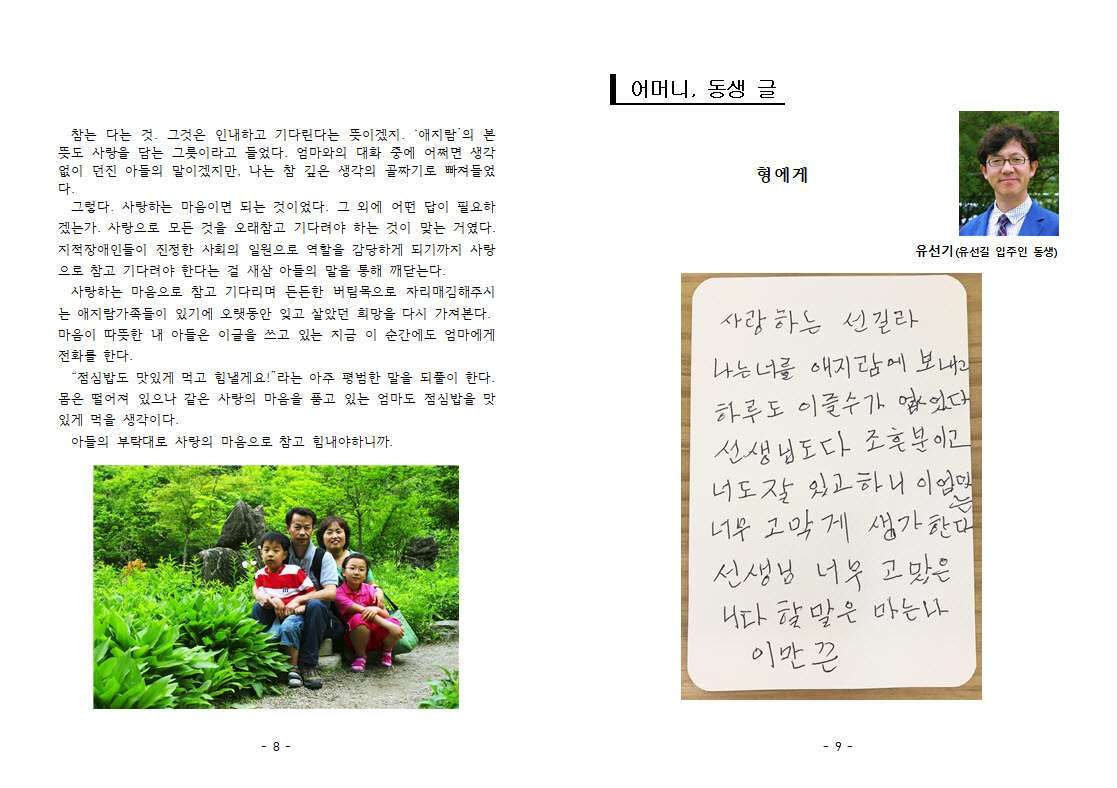 참는 다는 것. 그것은 인내하고 기다린다는 뜻이겠지. ‘애지람’의 본
뜻도 사랑을 담는 그릇이라고 들었다. 엄마와의 대화 중에 어쩌면 생각
없이 던진 아들의 말이겠지만, 나는 참 깊은 생각의 골짜기로 빠져들었
다.
그렇다. 사랑하는 마음이면 되는 것이었다. 그 외에 어떤 답이 필요하
겠는가. 사랑으로 모든 것을 오래참고 기다려야 하는 것이 맞는 거였다.
지적장애인들이 진정한 사회의 일원으로 역할을 감당하게 되기까지 사랑
으로 참고 기다려야 한다는 걸 새삼 아들의 말을 통해 깨닫는다.
사랑하는 마음으로 참고 기다리며 든든한 버팀목으로 자리매김해주시
는 애지람가족들이 있기에 오랫동안 잊고 살았던 희망을 다시 가져본다.
마음이 따뜻한 내 아들은 이글을 쓰고 있는 지금 이 순간에도 엄마에게
전화를 한다.
“점심밥도 맛있게 먹고 힘낼게요!”라는 아주 평범한 말을 되풀이 한다.
몸은 떨어져 있으나 같은 사랑의 마음을 품고 있는 엄마도 점심밥을 맛
있게 먹을 생각이다.
아들의 부탁대로 사랑의 마음으로 참고 힘내야하니까.
- 8 -
어머니, 동생 글
형에게
유선기(유선길 입주인 동생)
사랑하는 선길라
나는너를 애지람에 보내고
하루도 이즐수가 었었다
선생님도다 조흔분이고
너도잘 있고하니 이엄마는
너무 고막게 생가한다
선생님 너무 고맜은
니다 할말은 마는나
이만 끈
- 9 -